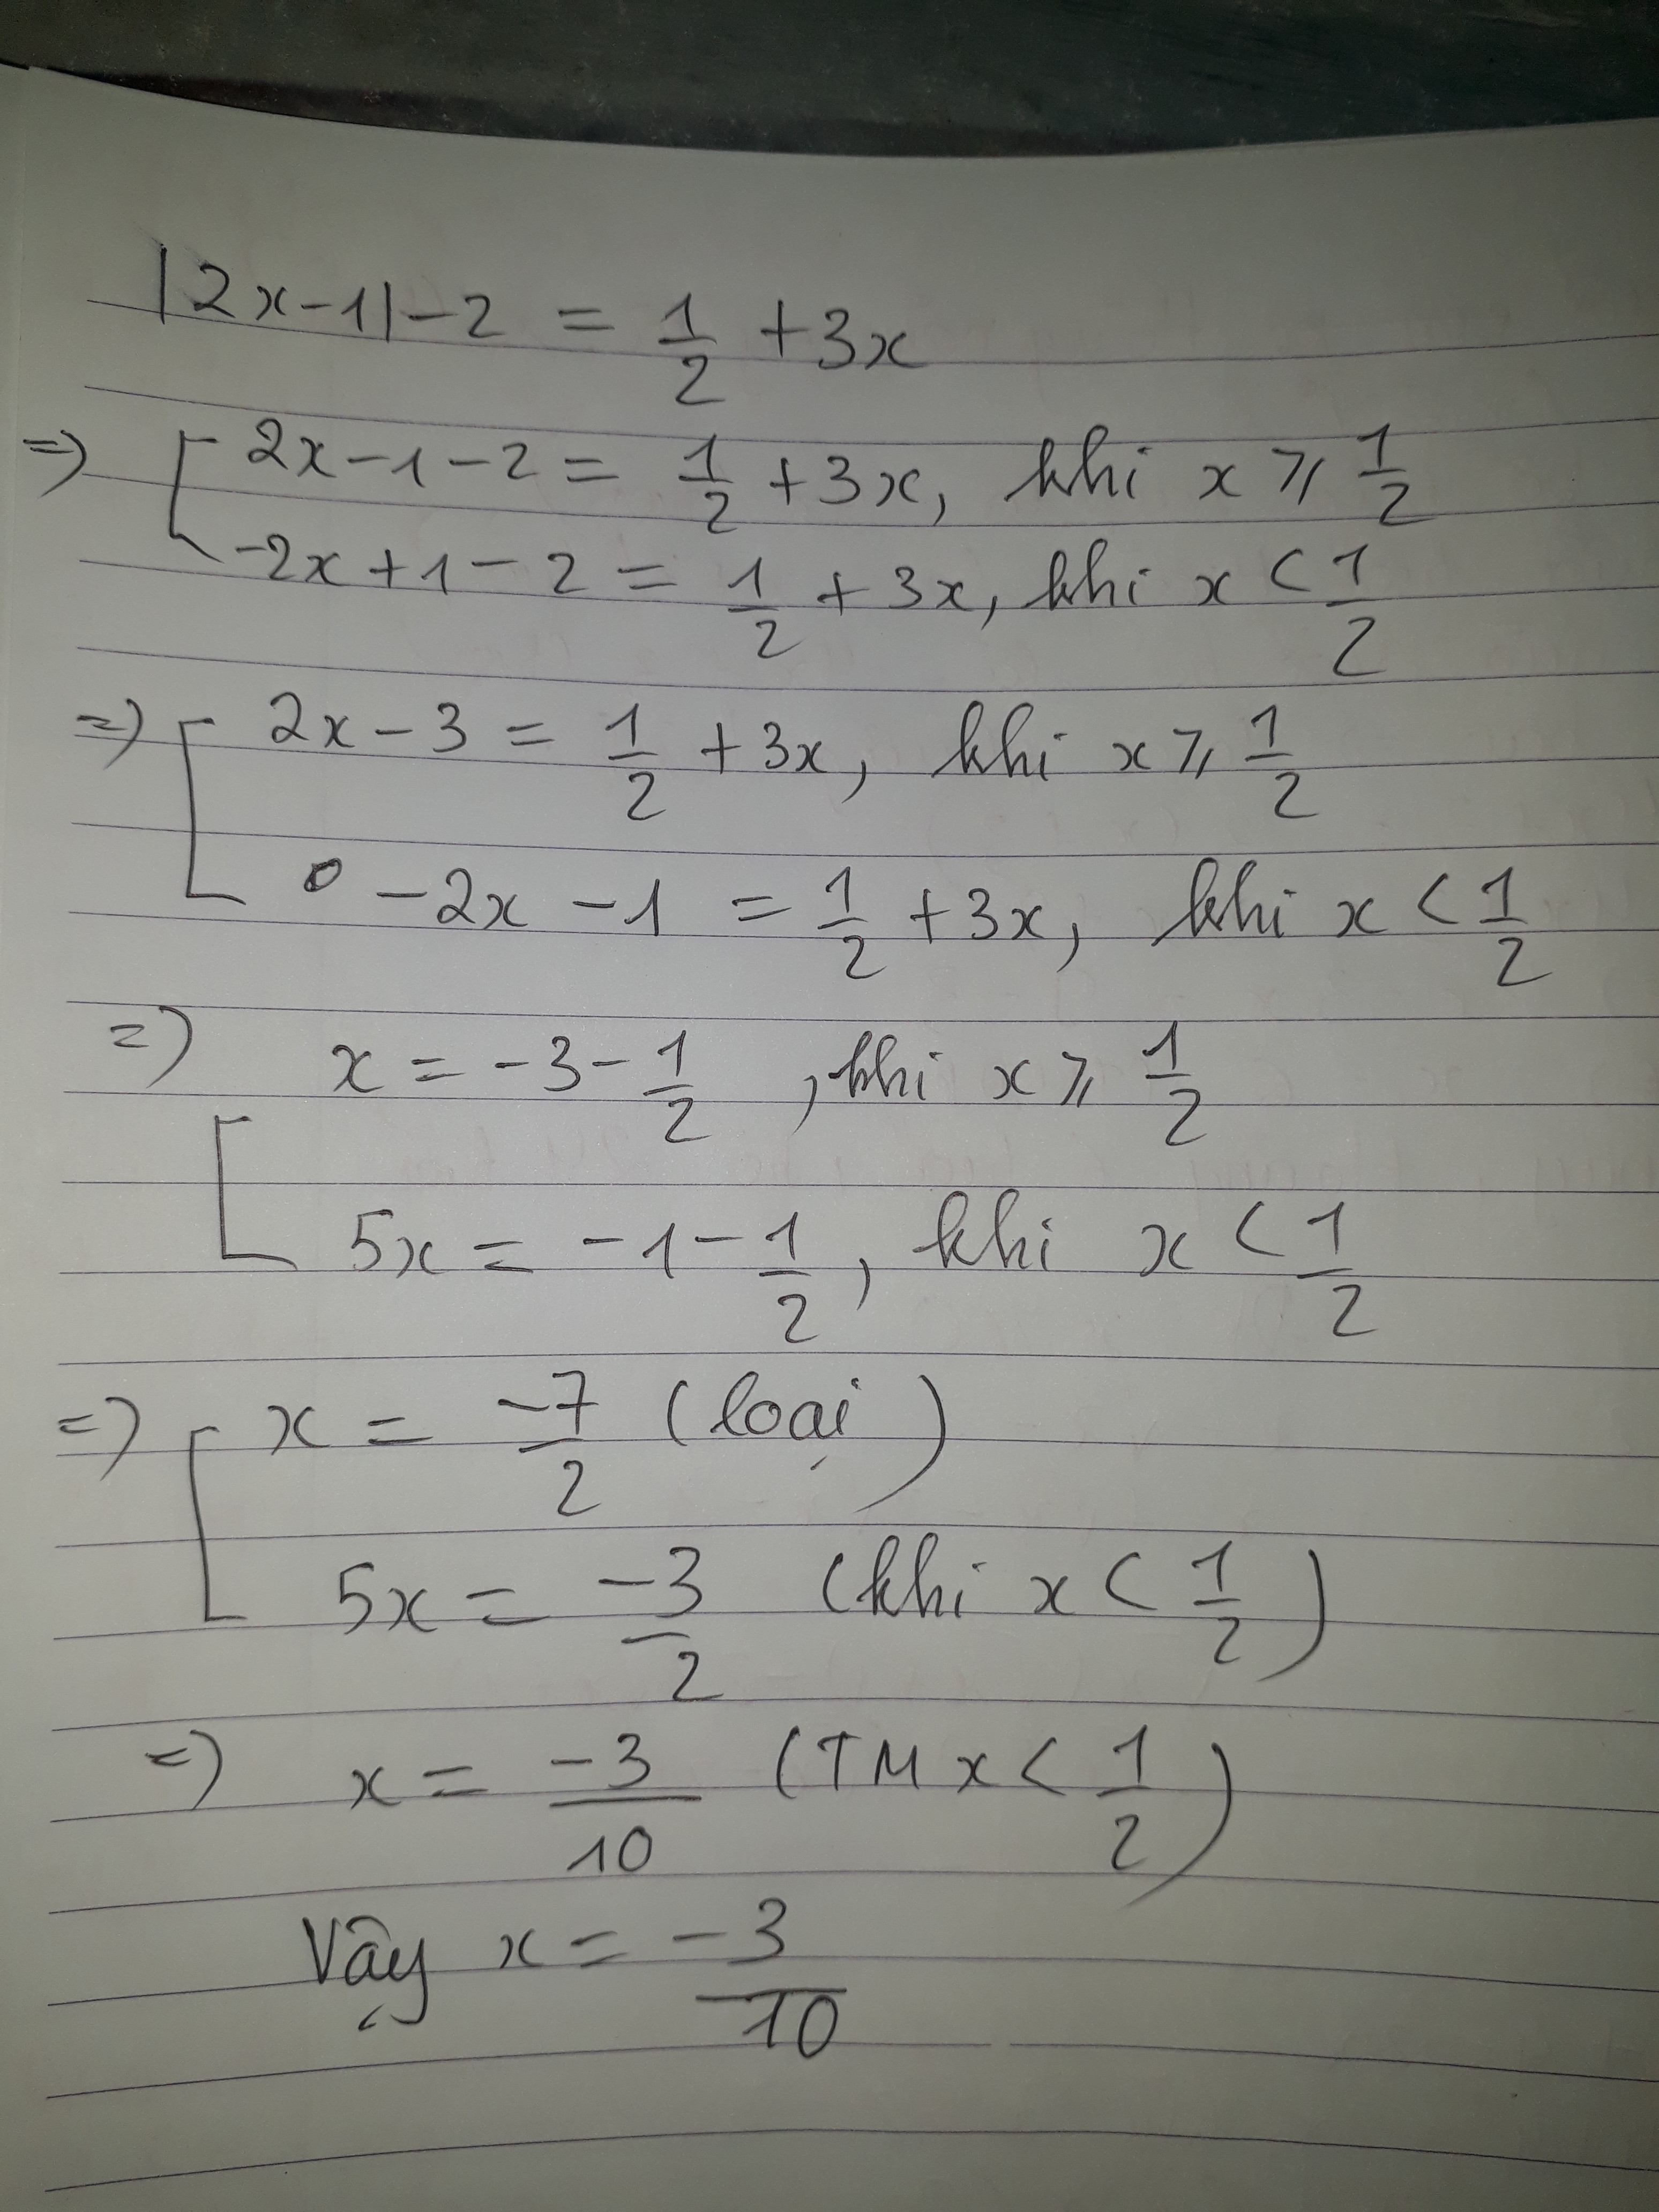 |2x-1|-2 = 1/2 + 3x
=> [ 2x-1-2 = 1/2 + 3x, khi x ⩾ 1/2
-2x+1-2 = 1/2 + 3x, khi x < 1/2
=> [ 2x-3 = 1/2 + 3x, khi x ⩾ 1/2
-2x-1 = 1/2 + 3x, khi x < 1/2
=> [ x = -3-1/2, khi x ⩾ 1/2
5x = -1-1/2, khi x < 1/2
=> [ x = -7/2 (loại)
5x = -3/2 (khi x < 1/2)
=> x = -3/10 (TM x < 1/2)
Vậy x = -3/10